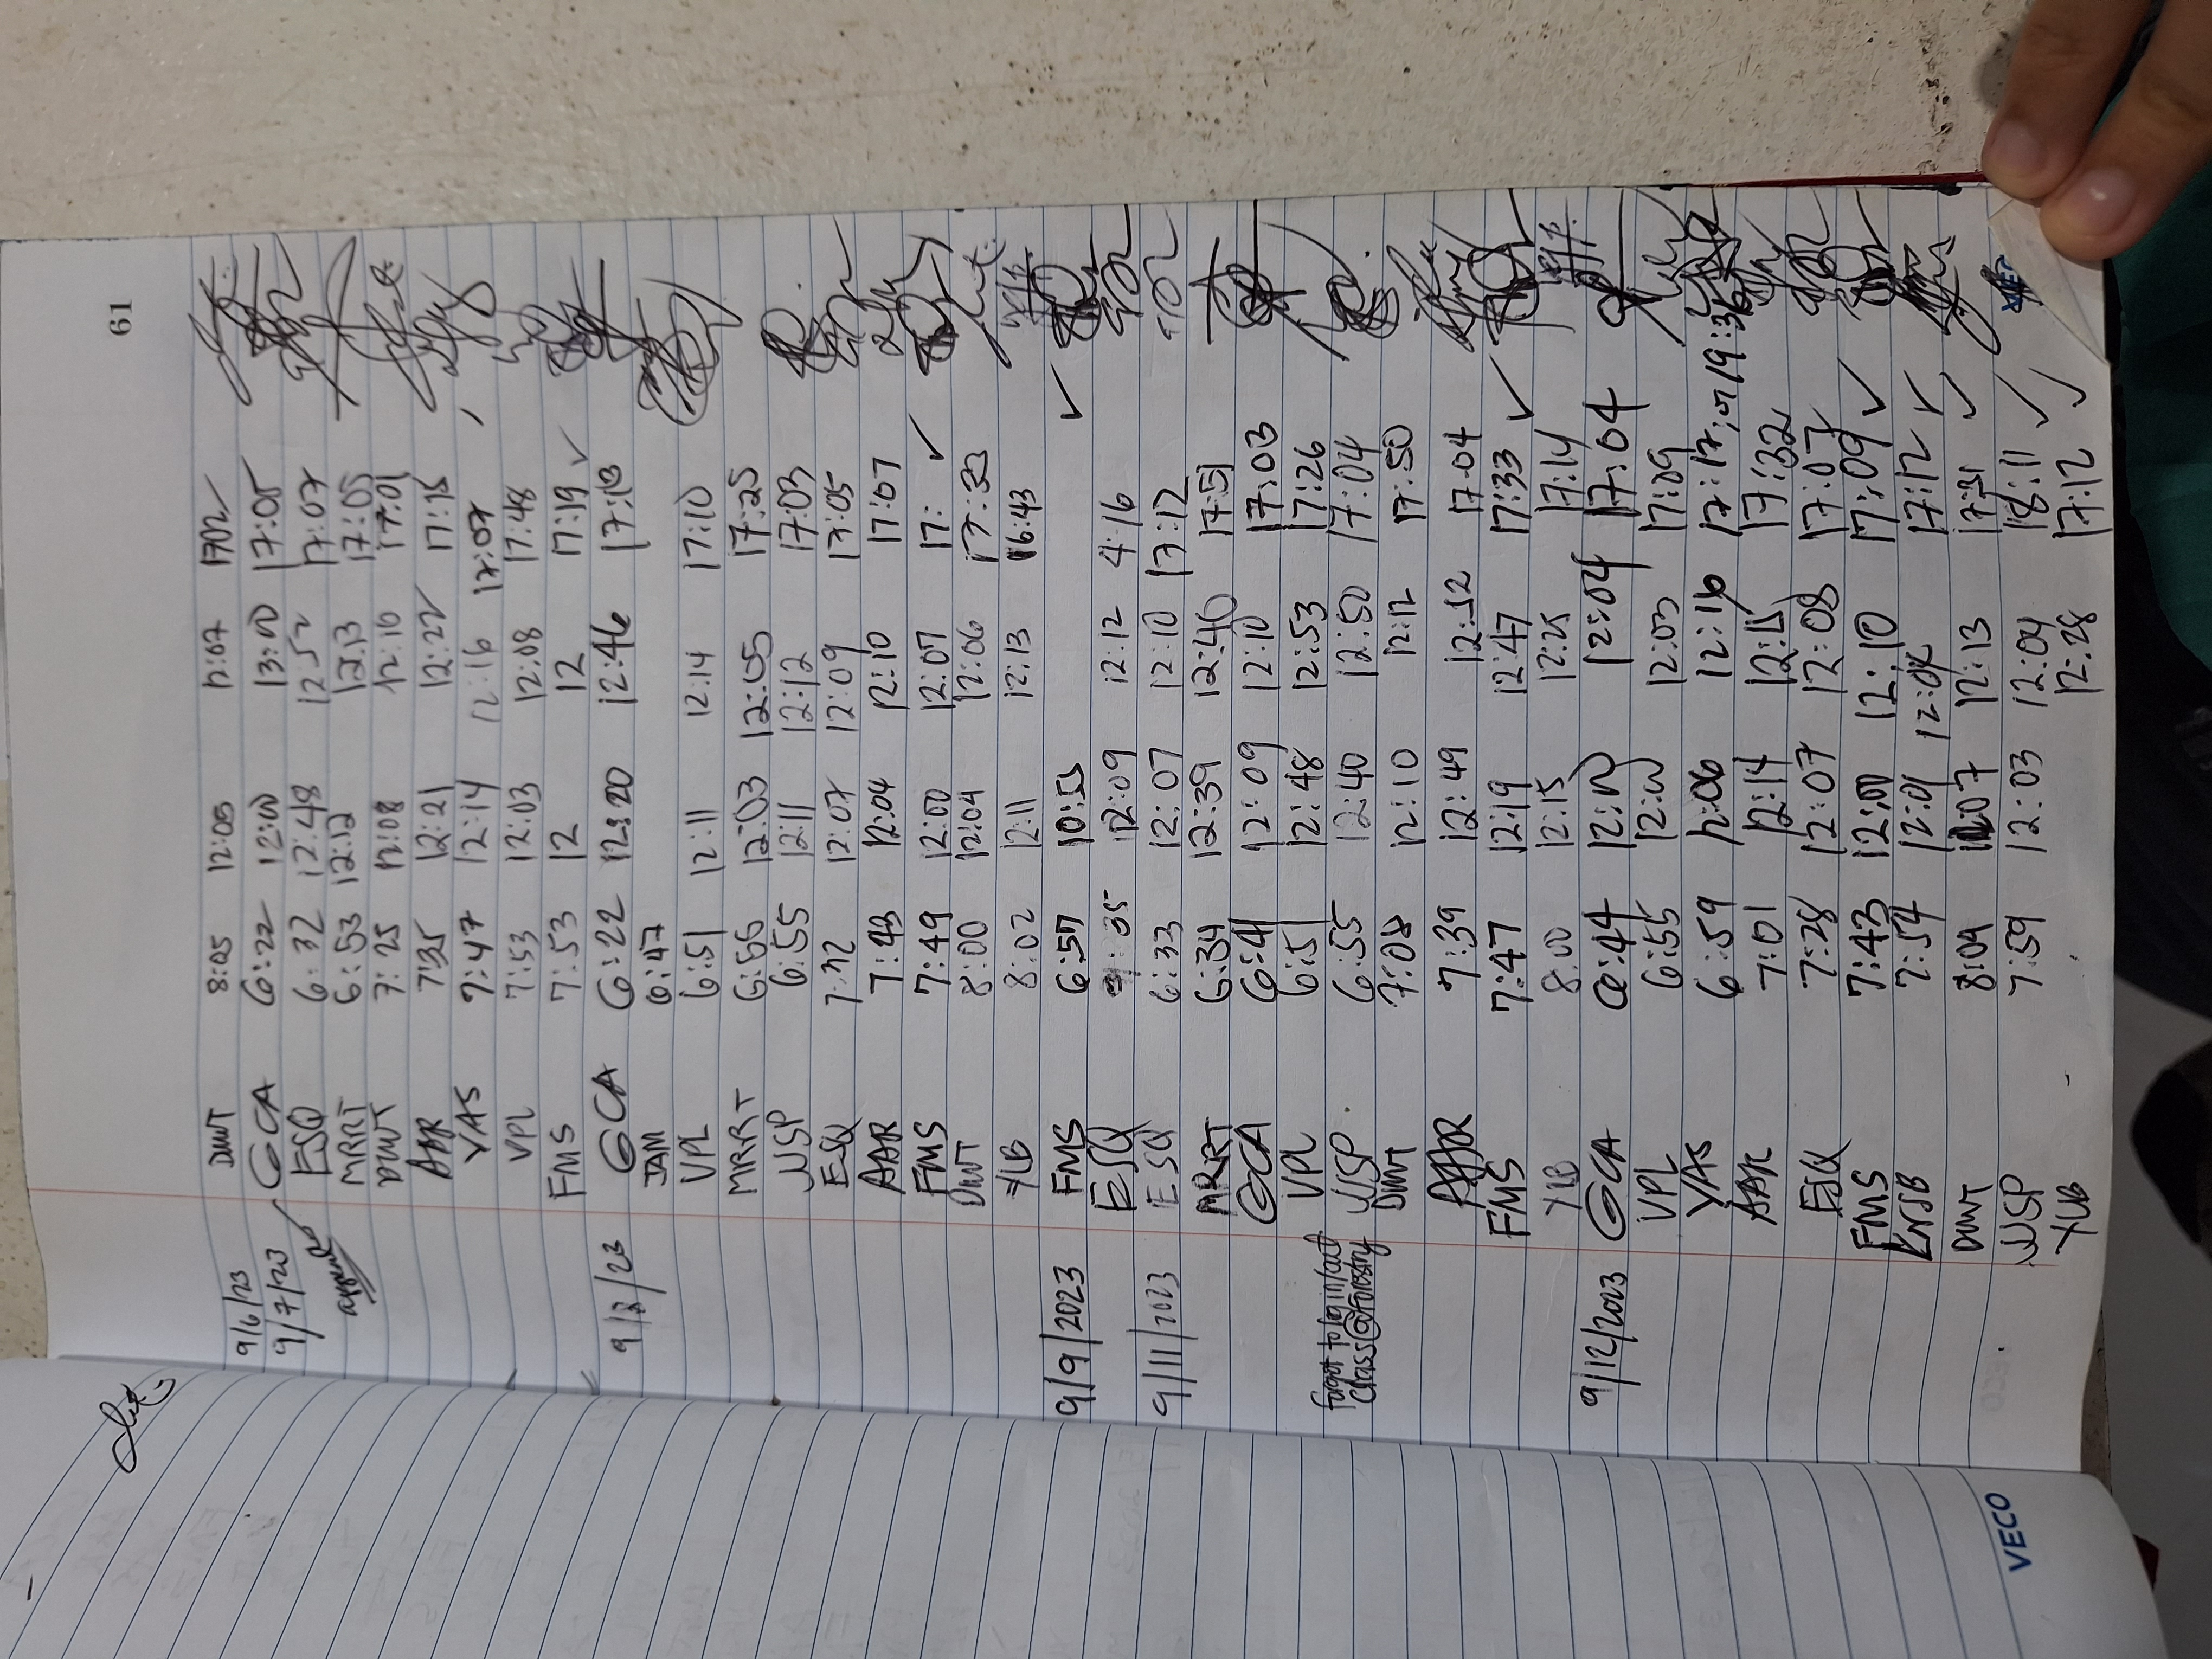 61
9/6/23 DWT 8:05 12:05 12:07 1702
9/7/23 GCA 6:22 12:00 13:00 17:05
ESQ 6:32 12:48 12:52 17:07
MRRT 6:53 12:12 12:13 17:05
DWT 7:25 12:08 12:10 17:01
AAR 7:35 12:21 12:22 17:15
YAS 7:47 12:14 12:16 17:07
VPL 7:53 12:03 12:08 17:48
FMS 7:53 12 12 17:19 ✓
9/8/23 GCA 6:22 12:20 12:46 17:13
JAM 6:47
VPL 6:51 12:11 12:14 17:10
MRRT 6:55 12:03 12:05 17:25
WSP 6:55 12:11 12:12 17:03
ESQ 7:32 12:07 12:09 17:05
AAR 7:43 12:04 12:10 17:07
FMS 7:49 12:00 12:07 17: ✓
DWT 8:00 12:04 12:06 17:33
YLB 8:02 12:11 12:13 16:43
9/9/2023 FMS 6:57 10:55 ✓
ESQ :35 12:09 12:12 4:16
9/11/2023 ESQ 6:33 12:07 12:10 17:12
MRRT 6:34 12:39 12:40 17:51
GCA 6:41 12:09 12:10 17:03
VPL 6:51 12:48 12:53 17:26
forgot to log in/out WSP 6:55 12:40 12:50 17:04
class @ Forestry DWT 7:08 12:10 12:12 17:50
AAR 7:39 12:49 12:52 17:04
FMS 7:47 12:19 12:47 17:33 ✓
YLB 8:00 12:15 12:25 17:14
9/12/2023 GCA 6:44 12:00 12:04 17:04
VPL 6:55 12:00 12:03 17:09
YAS 6:59 12:06 12:16 17:17 19:36
AAR 7:01 12:14 12:15 17:32
ESQ 7:28 12:07 12:08 17:07
FMS 7:43 12:00 12:10 17:09 ✓
7:54 12:01 17:12 ✓
DWT 8:09 12:13 17:31 ✓
WSP 7:59 12:03 12:04 18:11 ✓
YLB 12:28 17:12 ✓
VECO